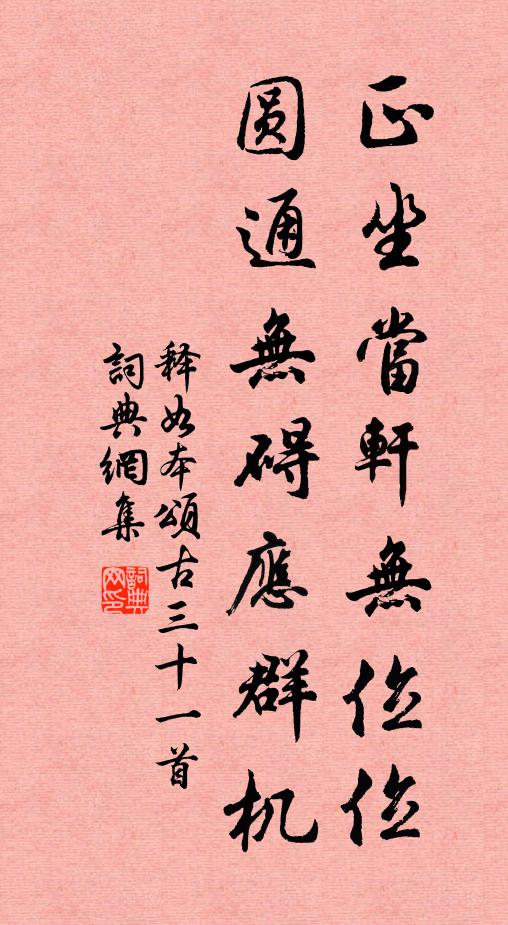 正坐當軒無位位
圆通無碍應群机
释如本頌古三十一首
詞典網集
詞典网印